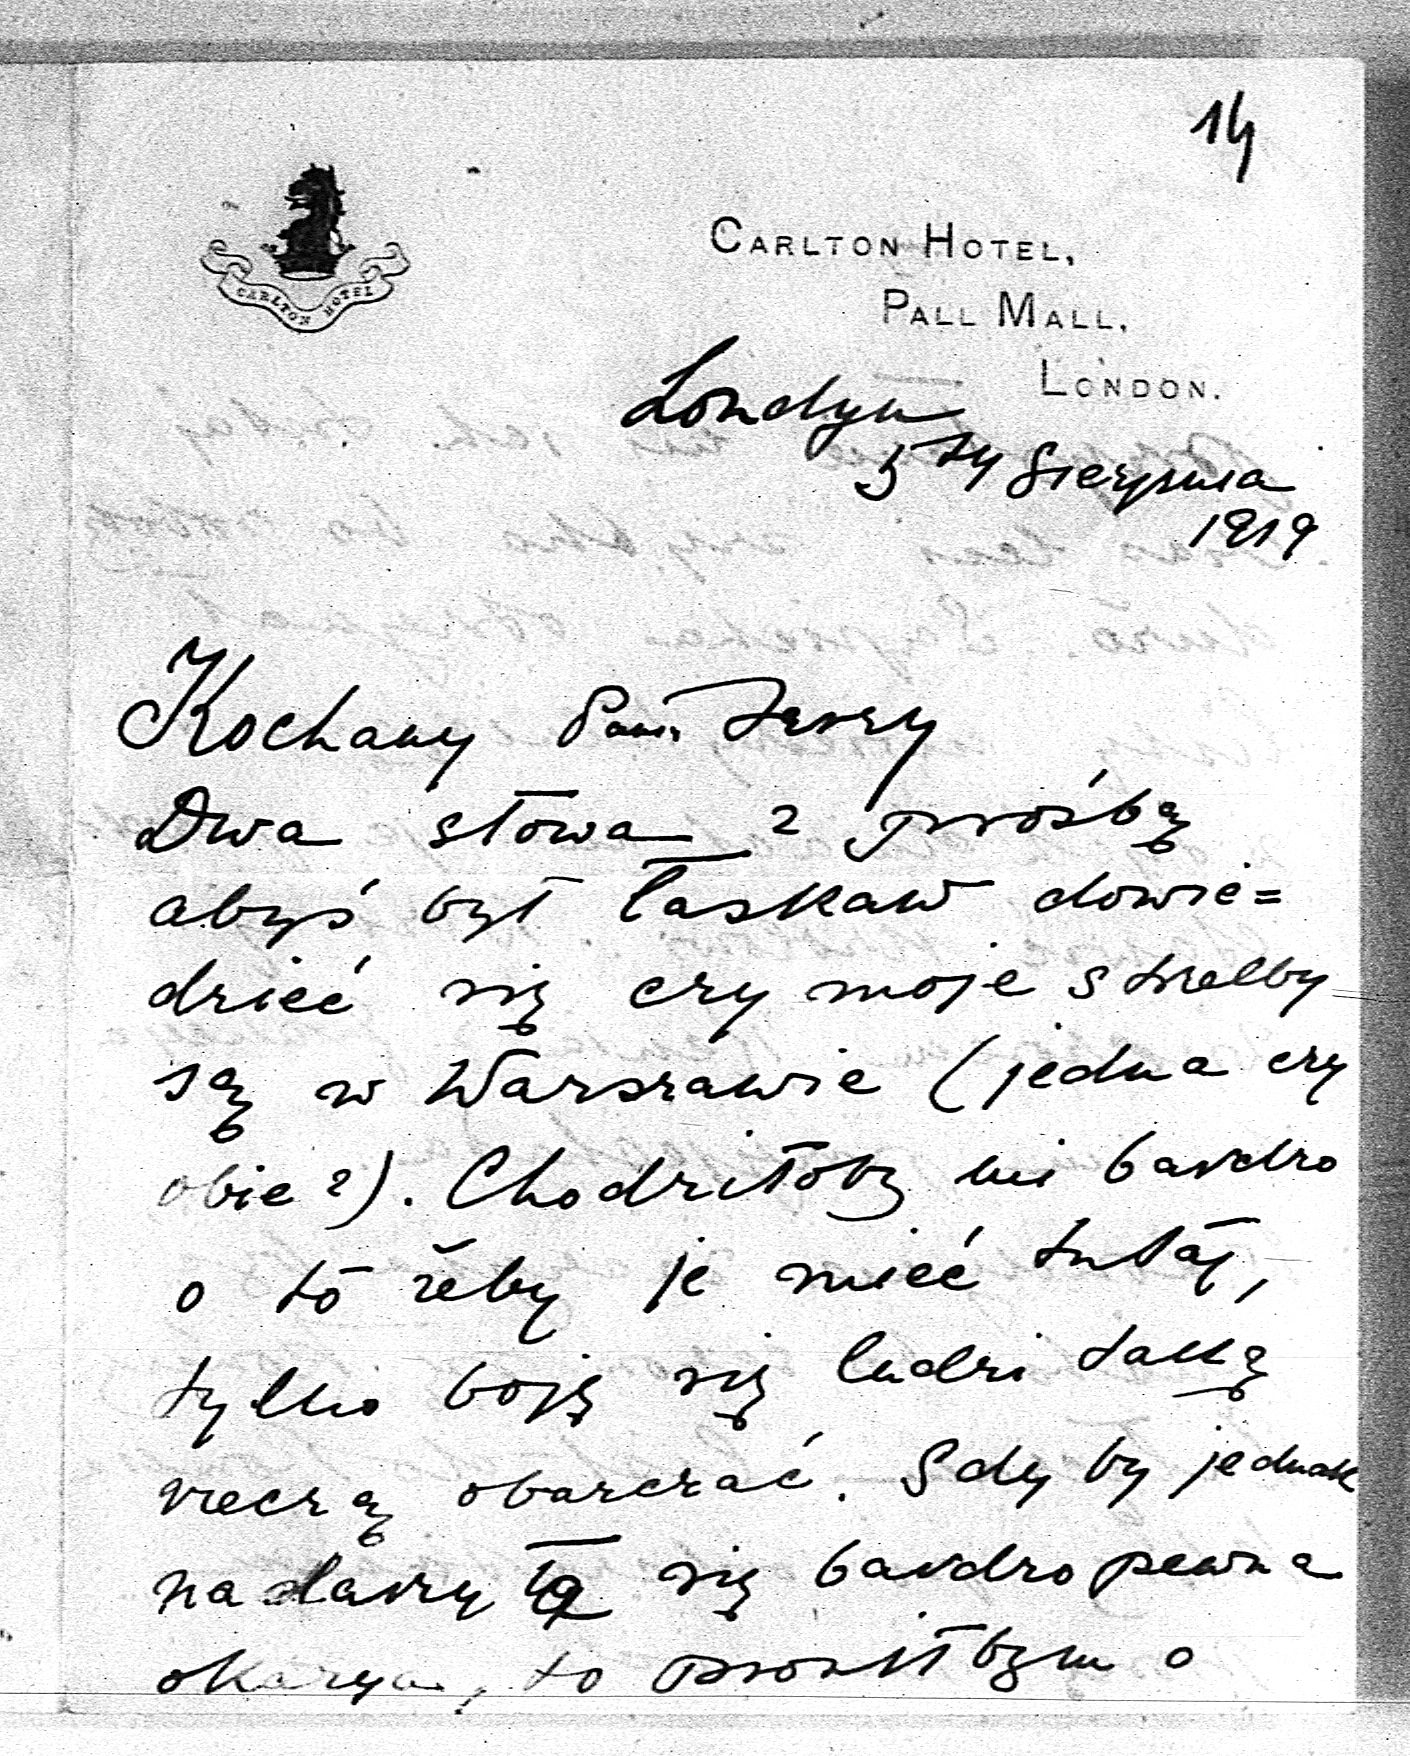 14
CARLTON HOTEL
CARLTON HOTEL,
PALL MALL,
LONDON.
Londyn
5ty Sierpnia
1919
Kochany Panie Jerzy
Dwa słowa z prośbą
abyś był łaskaw dowie=
dzieć się czy moje strzelby
są w Warszawie (jedna czy
obie?). Chodziłoby mi bardzo
o to żeby je mieć tutaj,
tylko boję się ludzi taką
rzeczą obarczać. Gdyby jednak
nadarzyła się bardzo pewna
okazya, to prosiłbym o